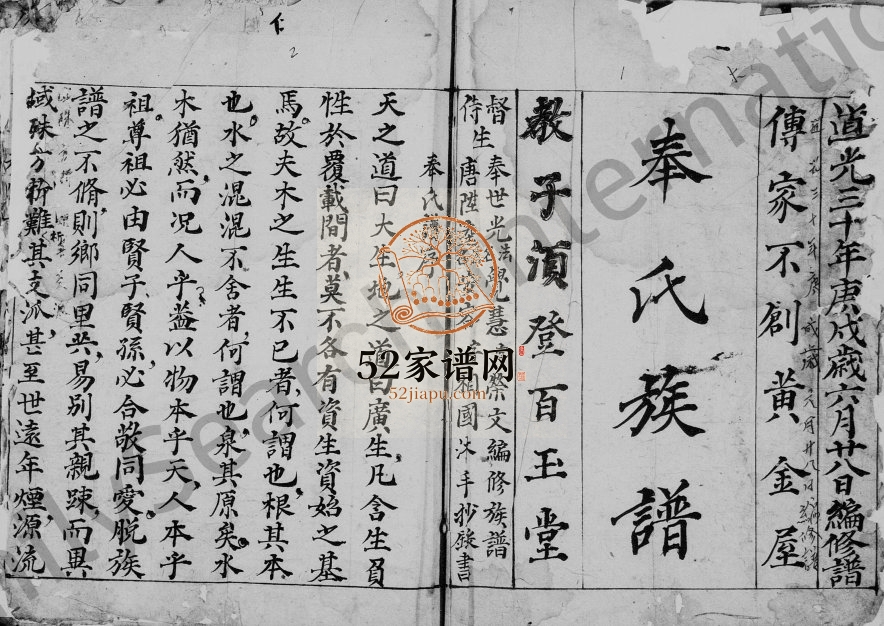 道光三十年庚戌歲六月廿八日編修譜
傳家不創黃金屋
奉氏族譜
教子須登百玉堂
督 奉世光 編修族譜
侍生 唐陞 手抄錄書
奉氏譜序
天之道曰大生地之道曰廣生凡含生負
性於覆載間者莫不各有資生資始之基
焉故夫木之生生不已者何謂也根其本
也水之混混不舍者何謂也泉其原矣水
木猶然而況人乎蓋以物本乎天人本乎
祖尊祖必由賢子賢孫必合敬同愛脫族
譜之不脩則鄉同里共易別其親踈而異
域殊方析難其支派甚至世遠年煙源流
52家谱网
52jiapu.com
Search International